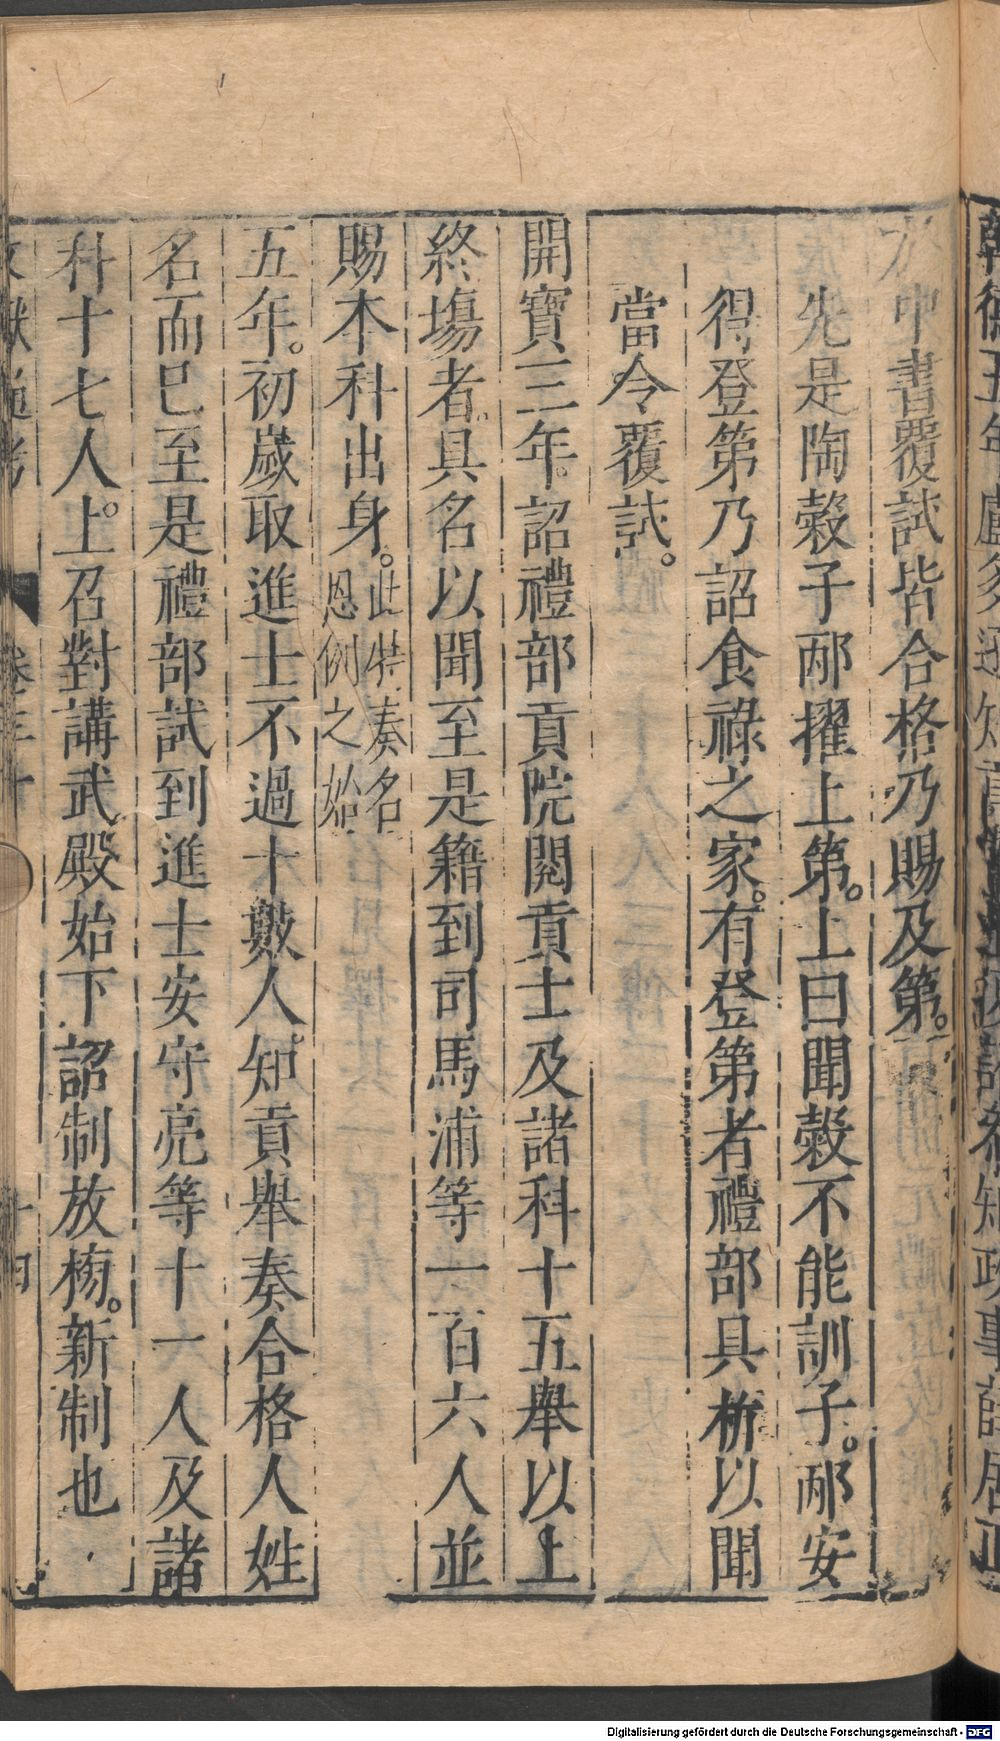 中書覆試皆合格乃賜及第。
先是陶穀子邴擢上第。上曰聞穀不能訓子。邴安
得登第乃詔食祿之家。有登第者禮部具析以聞
當令覆試。
開寶三年。詔禮部貢院閱貢士及諸科十五舉以上
終塲者。具名以聞至是籍到司馬浦等一百六人並
賜本科出身。此特奏名
恩例之始
五年。初嵗取進士不過十數人。知貢舉奏合格人姓
名而巳至是禮部試到進士安守亮等十一人及諸
科十七人。上召對講武殿始下詔制放榜。新制也
文獻通考 卷三十 十四
Digitalisierung gefördert durch die Deutsche Forschungsgemeinschaft - DFG